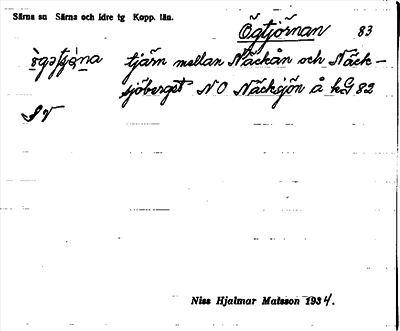 Särna sn Särna och Idre tg Kopp. län.
Ögtjörnan 83
tjärn mellan Näckån och Näck-
sjöberget NO Näcksjön å kG 82
Niss Hjalmar Matsson 1934.